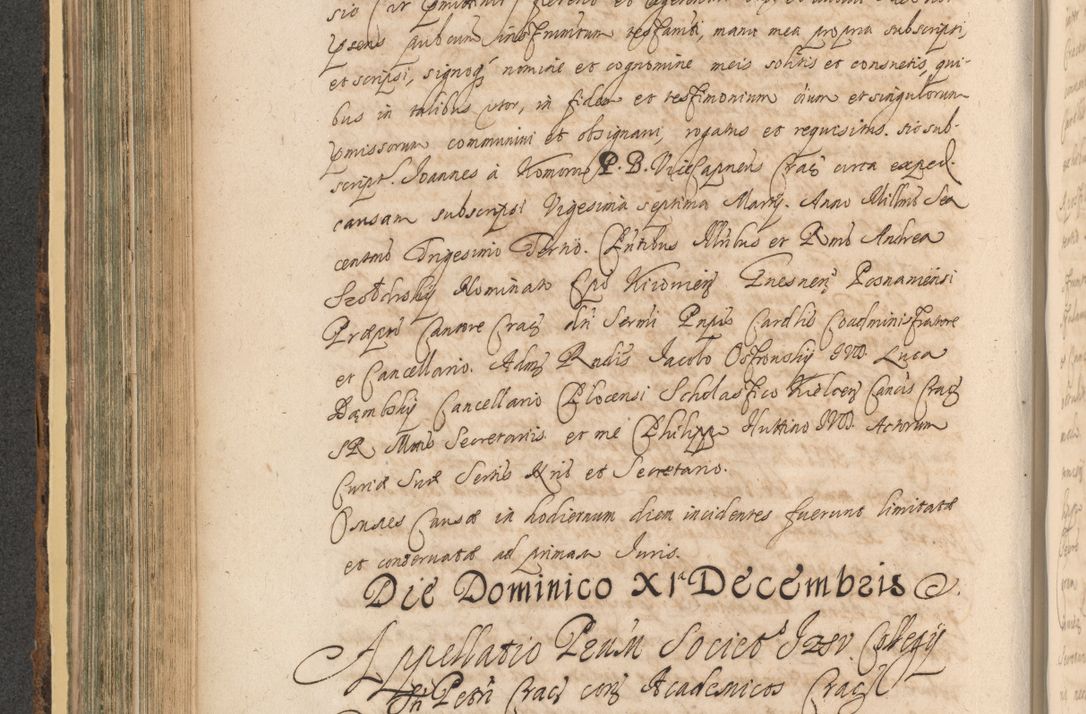 psens publicum Instrumentum testamti, manu mea propria subscripsi,
et scripsi, signoq nomine et cognomine meis solitis et consuetis, qui-
bus in talibus utor, in fidem et testimonium oium et singulorum
pmissorum communivi et obsignavi, rogatus et requisitus. sic sub-
script. Joannes à Komorow P. D. Vicecapneus Crac circa exped.
causam subscripsi Vigesima septima Martij. Anno Millmo Sex
centmo Trigesimo Tertio. Pntibus Illubus et Rmis Andrea
Szołdrsky Nominato Epo Kiiovien Gnesnen Posnaniensi
Præpto Cantore Crac dni Sermi Pnpis Cardlis Coadministratore
et Cancellario. Adm Rndis Jacobo Ostronsky JUD. Luca
Dąmbsky Cancellario Plocensi Scholastico Kielcen Cancis Crac
SR Mttis Secretariis. et me Philippo Huttino JUD. Actorum
Curiæ Suæ Sertis Nrio et Secretario.
Omnes Causæ in hodiernum diem incidentes fuerunt limitatæ
et conservatæ ad primam Juris.
Die Dominico XIa Decembris
Appellatio Prum Societs Jesu Collegij
Petri Crac contra Academicos Crac